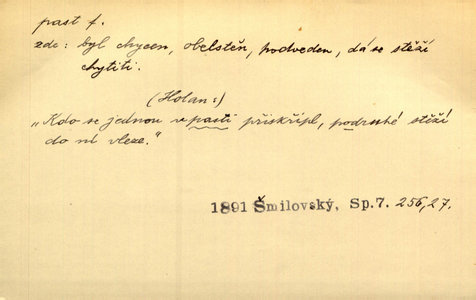 past f.
zde: byl chycen, obelstěn, podveden, dá se stěží
chytiti.
(Holan:)
„Kdo se jednou v pasti přiskřípl, podruhé stěží
do ní vleze."
1891 Šmilovský, Sp.7. 256,27.